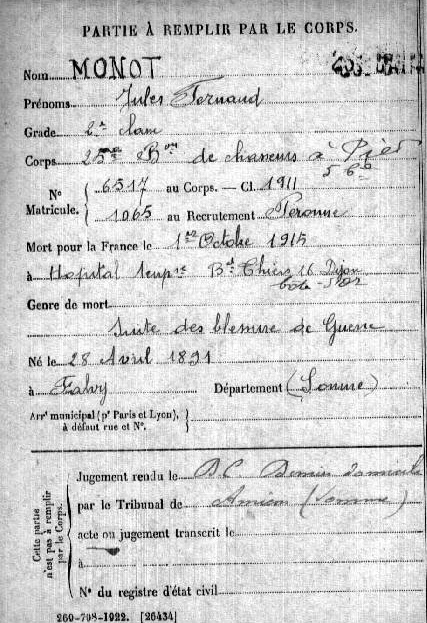 PARTIE À REMPLIR PAR LE CORPS.
Nom MONOT
Prénoms Jules Fernand
Grade 2e classe
Corps 25me Bon de chasseurs à Pied
5 Cie
No Matricule. { 6517 au Corps. — Cl. 1911
1065 au Recrutement Péronne
Mort pour la France le 1er Octobre 1915
à Hopital temp.re Bd Thiers 16 Dijon
Cote-d'Or
Genre de mort
Suite des blessure de Guerre
Né le 28 Avril 1891
à Falvy Département (Somme)
Arrt municipal (pr Paris et Lyon), à défaut rue et No. }
Cette partie n'est pas à remplir par le Corps.
Jugement rendu le D.C. Dernier domicile
par le Tribunal de Amiens (Somme)
acte ou jugement transcrit le
à
No du registre d'état civil
260-708-1922. [26434]